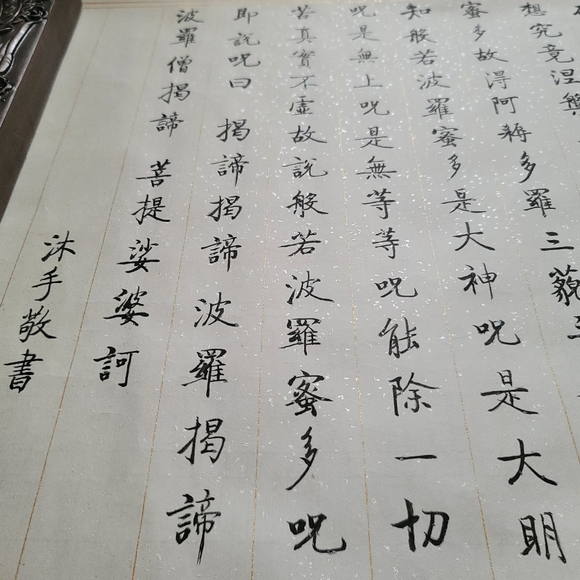 想究竟涅槃
蜜多故得阿耨多羅三藐三
知般若波羅蜜多是大神呪是大明
呪是無上呪是無等等呪能除一切
苦真實不虛故說般若波羅蜜多呪
即說呪曰 揭諦揭諦 波羅揭諦
波羅僧揭諦 菩提娑婆訶
沐手敬書